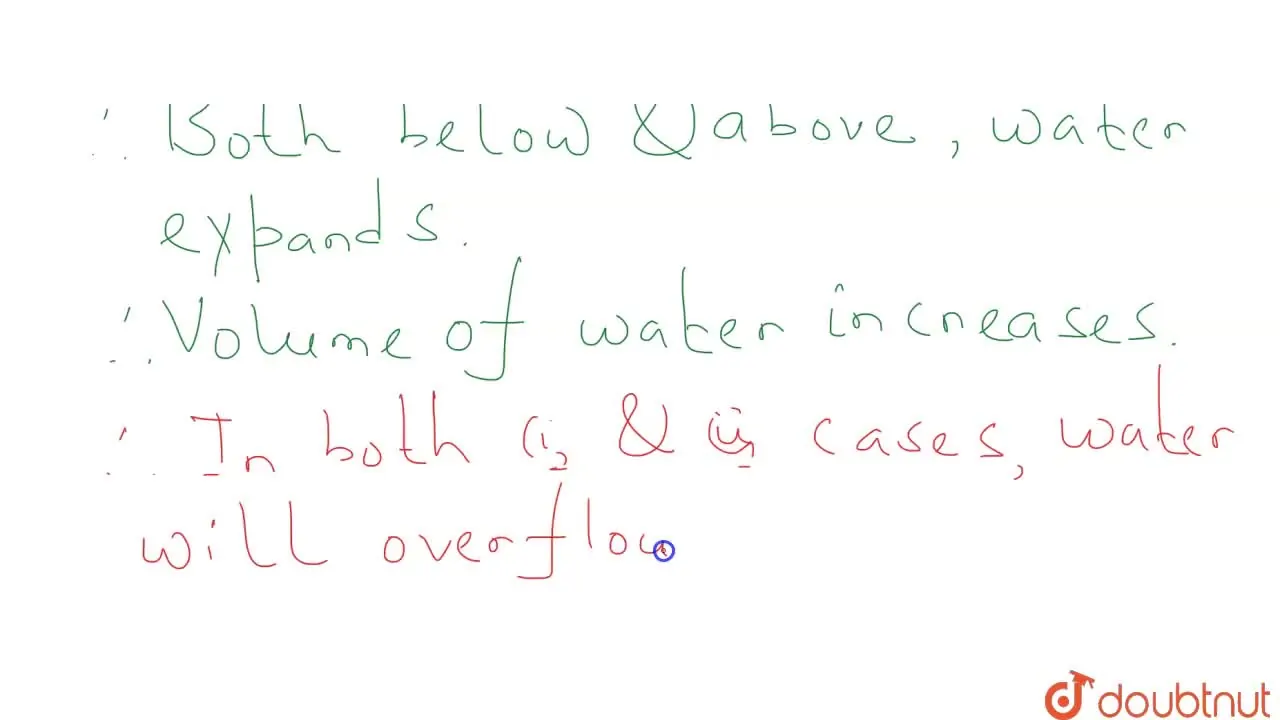 ∴ Both below & above, water
expands.
∴ Volume of water increases.
∴ In both (i) & (ii) cases, water
will overflow
doubtnut